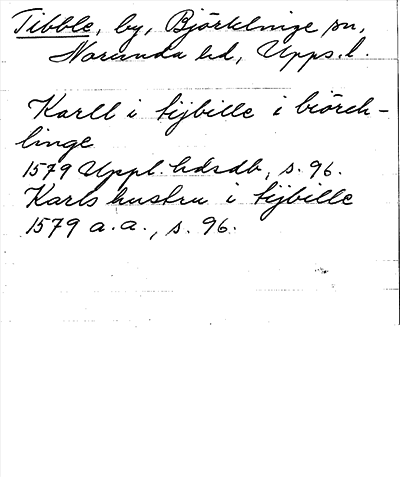 Tibble, by, Björklinge sn,
Norunda hd, Upps. l.
Karll i tijbille i biörck-
linge
1579 Uppl. hdrdb, s. 96.
Karls hustru i tijbille
1579 a. a., s. 96.